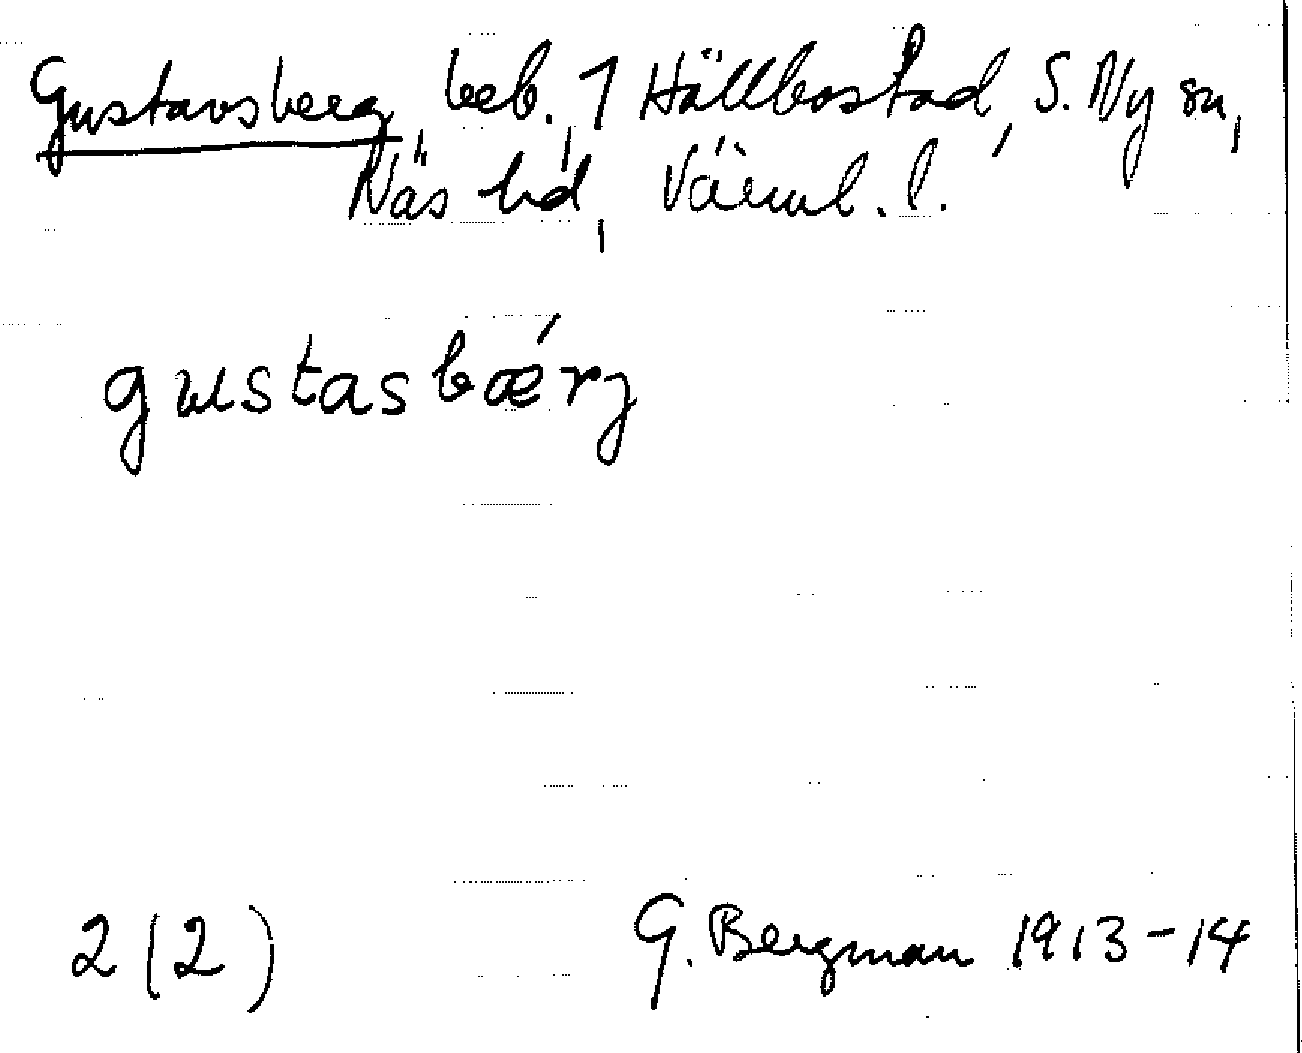 Gustavsberg, beb., 1 Hällbostad, S. Ny sn,
Näs hd, Värml. l.
gustasbǽrj
2(2)
G. Bergman 1913-14